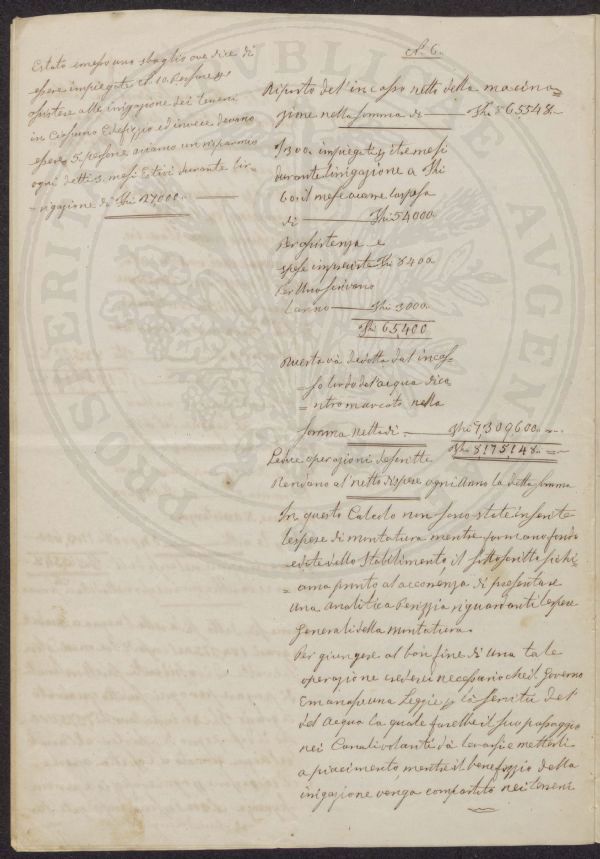 N. 6.
Estato emesso uno sbaglio ove dice di
essere impiegate N. 10. Persone
assistere alle inigazione dei tereni
in Ciascuno Edefizio ed invece devono
essere 5. persone aviamo un risparmio
ogni detti 3. mesi Estivi durante l'ir-
-rigazione di Thi 27000 —
Riporto del'incasso netto della macina=
zione nella somma di — Thi 865548 —
300 impiegati 3 mesi
durante l'inrigazione a Thi
60 il mese avene la spesa
di — Thi 54000 —
Per assistenza e
spese impreviste Thi 8400
Per Uno scrivano
l'anno — Thi 3000 —
Thi 65,400
Questa va dedotta dal'incas-
= so lordo del'acqua dica
= ntro marcato nella
Somma Netta di — Thi 7,309600 —
Le due operazioni descritte Thi 8175,148 —
Rendano al netto di spese ogni Anno la detta somma
In questo Calcolo non sono state inserite
l'espese di montatura mentre formano fondo
e dite dello Stabilimento, il sottoscritto si chi-
= ama pronto al accorenza di presentare
una analitica Perizzia riguardanti l'espese
Generali della montatura.
Per giungere al bon fine di una tale
operazione crederei necessario che il Governo
Emanasse una Leggie di servitu del'
del Acqua la quale farebbe il suo passaggio
nei Canali volanti da levarsi e mettersi
a piacimento, mentre il benefizzio della
inigazione venga compartito nei tereni
PROSPERITA PUBLICAE AUGENDAE